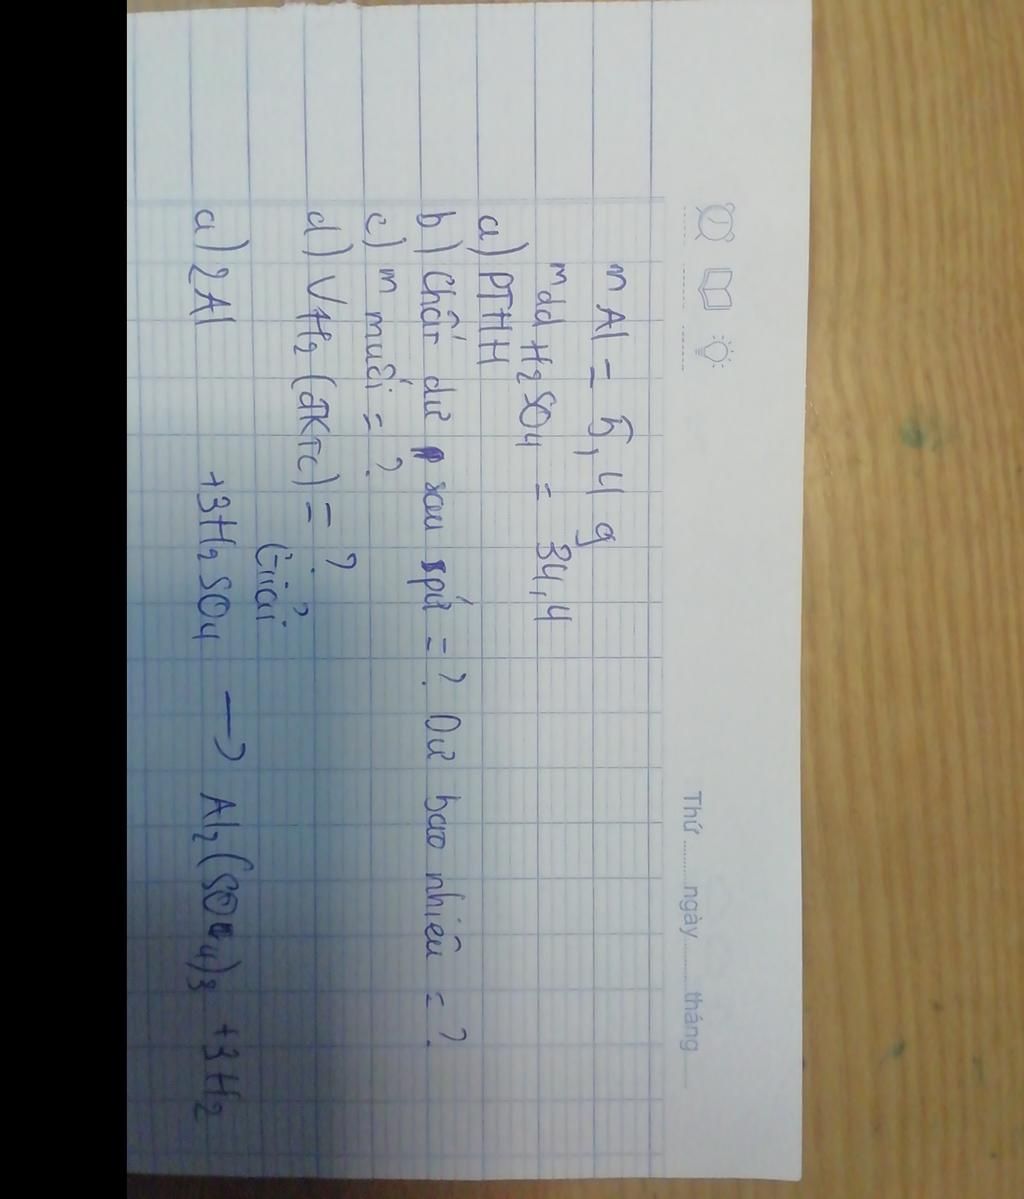 Thứ ........ ngày ........ tháng
m Al = 5,4 g
m dd H₂SO₄ = 34,4
a) PTHH
b) Chất dư sau pứ = ? Dư bao nhiêu = ?
c) m muối = ?
d) VH₂ (đKTC) = ?
Giải
a) 2Al + 3H₂SO₄ → Al₂(SO₄)₃ + 3H₂